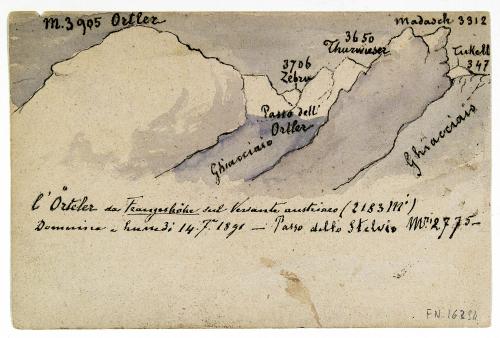 M. 3905 Ortler
3706
Zebru
3650
Thurwieser
Madasch 3312
Tukett
347
Passo dell'
Ortler
Ghiacciaio
Ghiacciaio
L'Örtler da Franzeshöhe sul Versante austriaco (2183 Mi)
Domenica e Lunedi 14. 7. 1891 — Passo dello Stelvio Mtri 2775—
FN. 16234